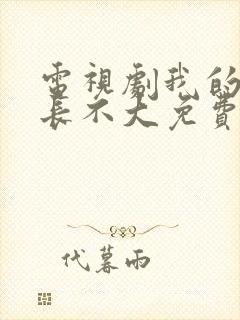 電視劇我的
長不大免費
代暮雨